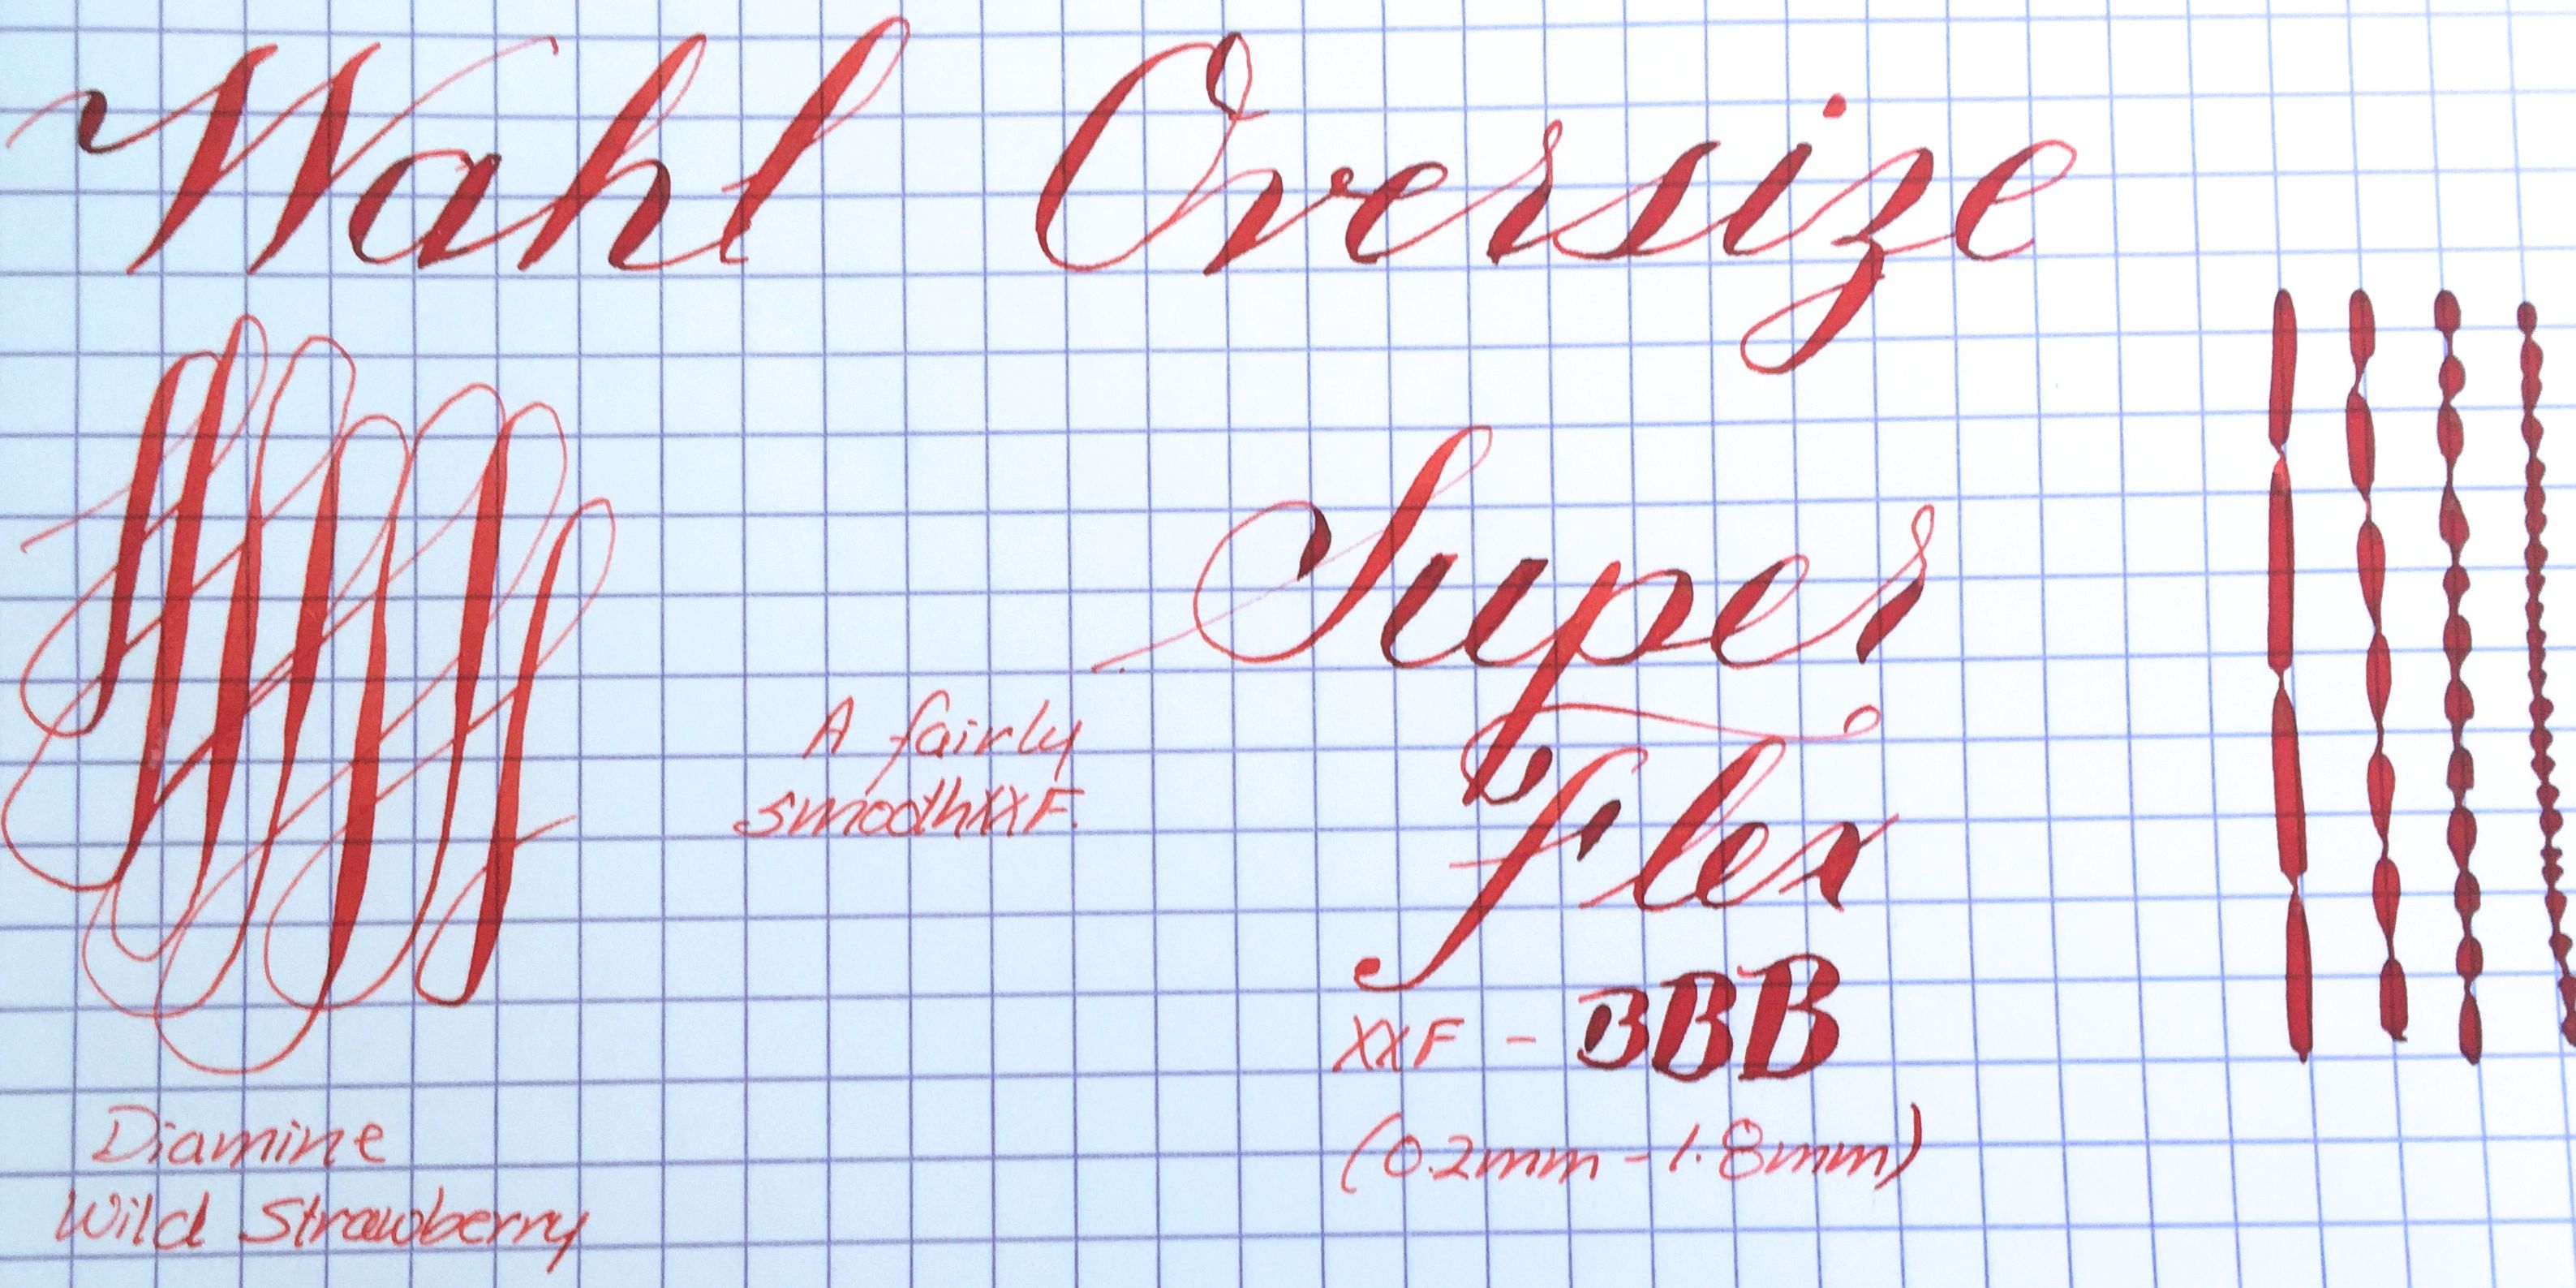 Wahl Oversize
Super
Flex
A fairly
smooth XXF.
XXF - BBB
(0.2mm - 1.8mm)
Diamine
Wild Strawberry